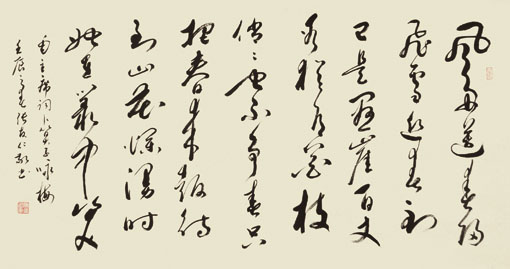 風雨送春歸
飛雪迎春到
已是懸崖百丈
冰猶有花枝
俏〻也不争春只
把春来報待
到山花爛漫时
她在叢中笑
毛主席词卜算子咏梅
壬辰